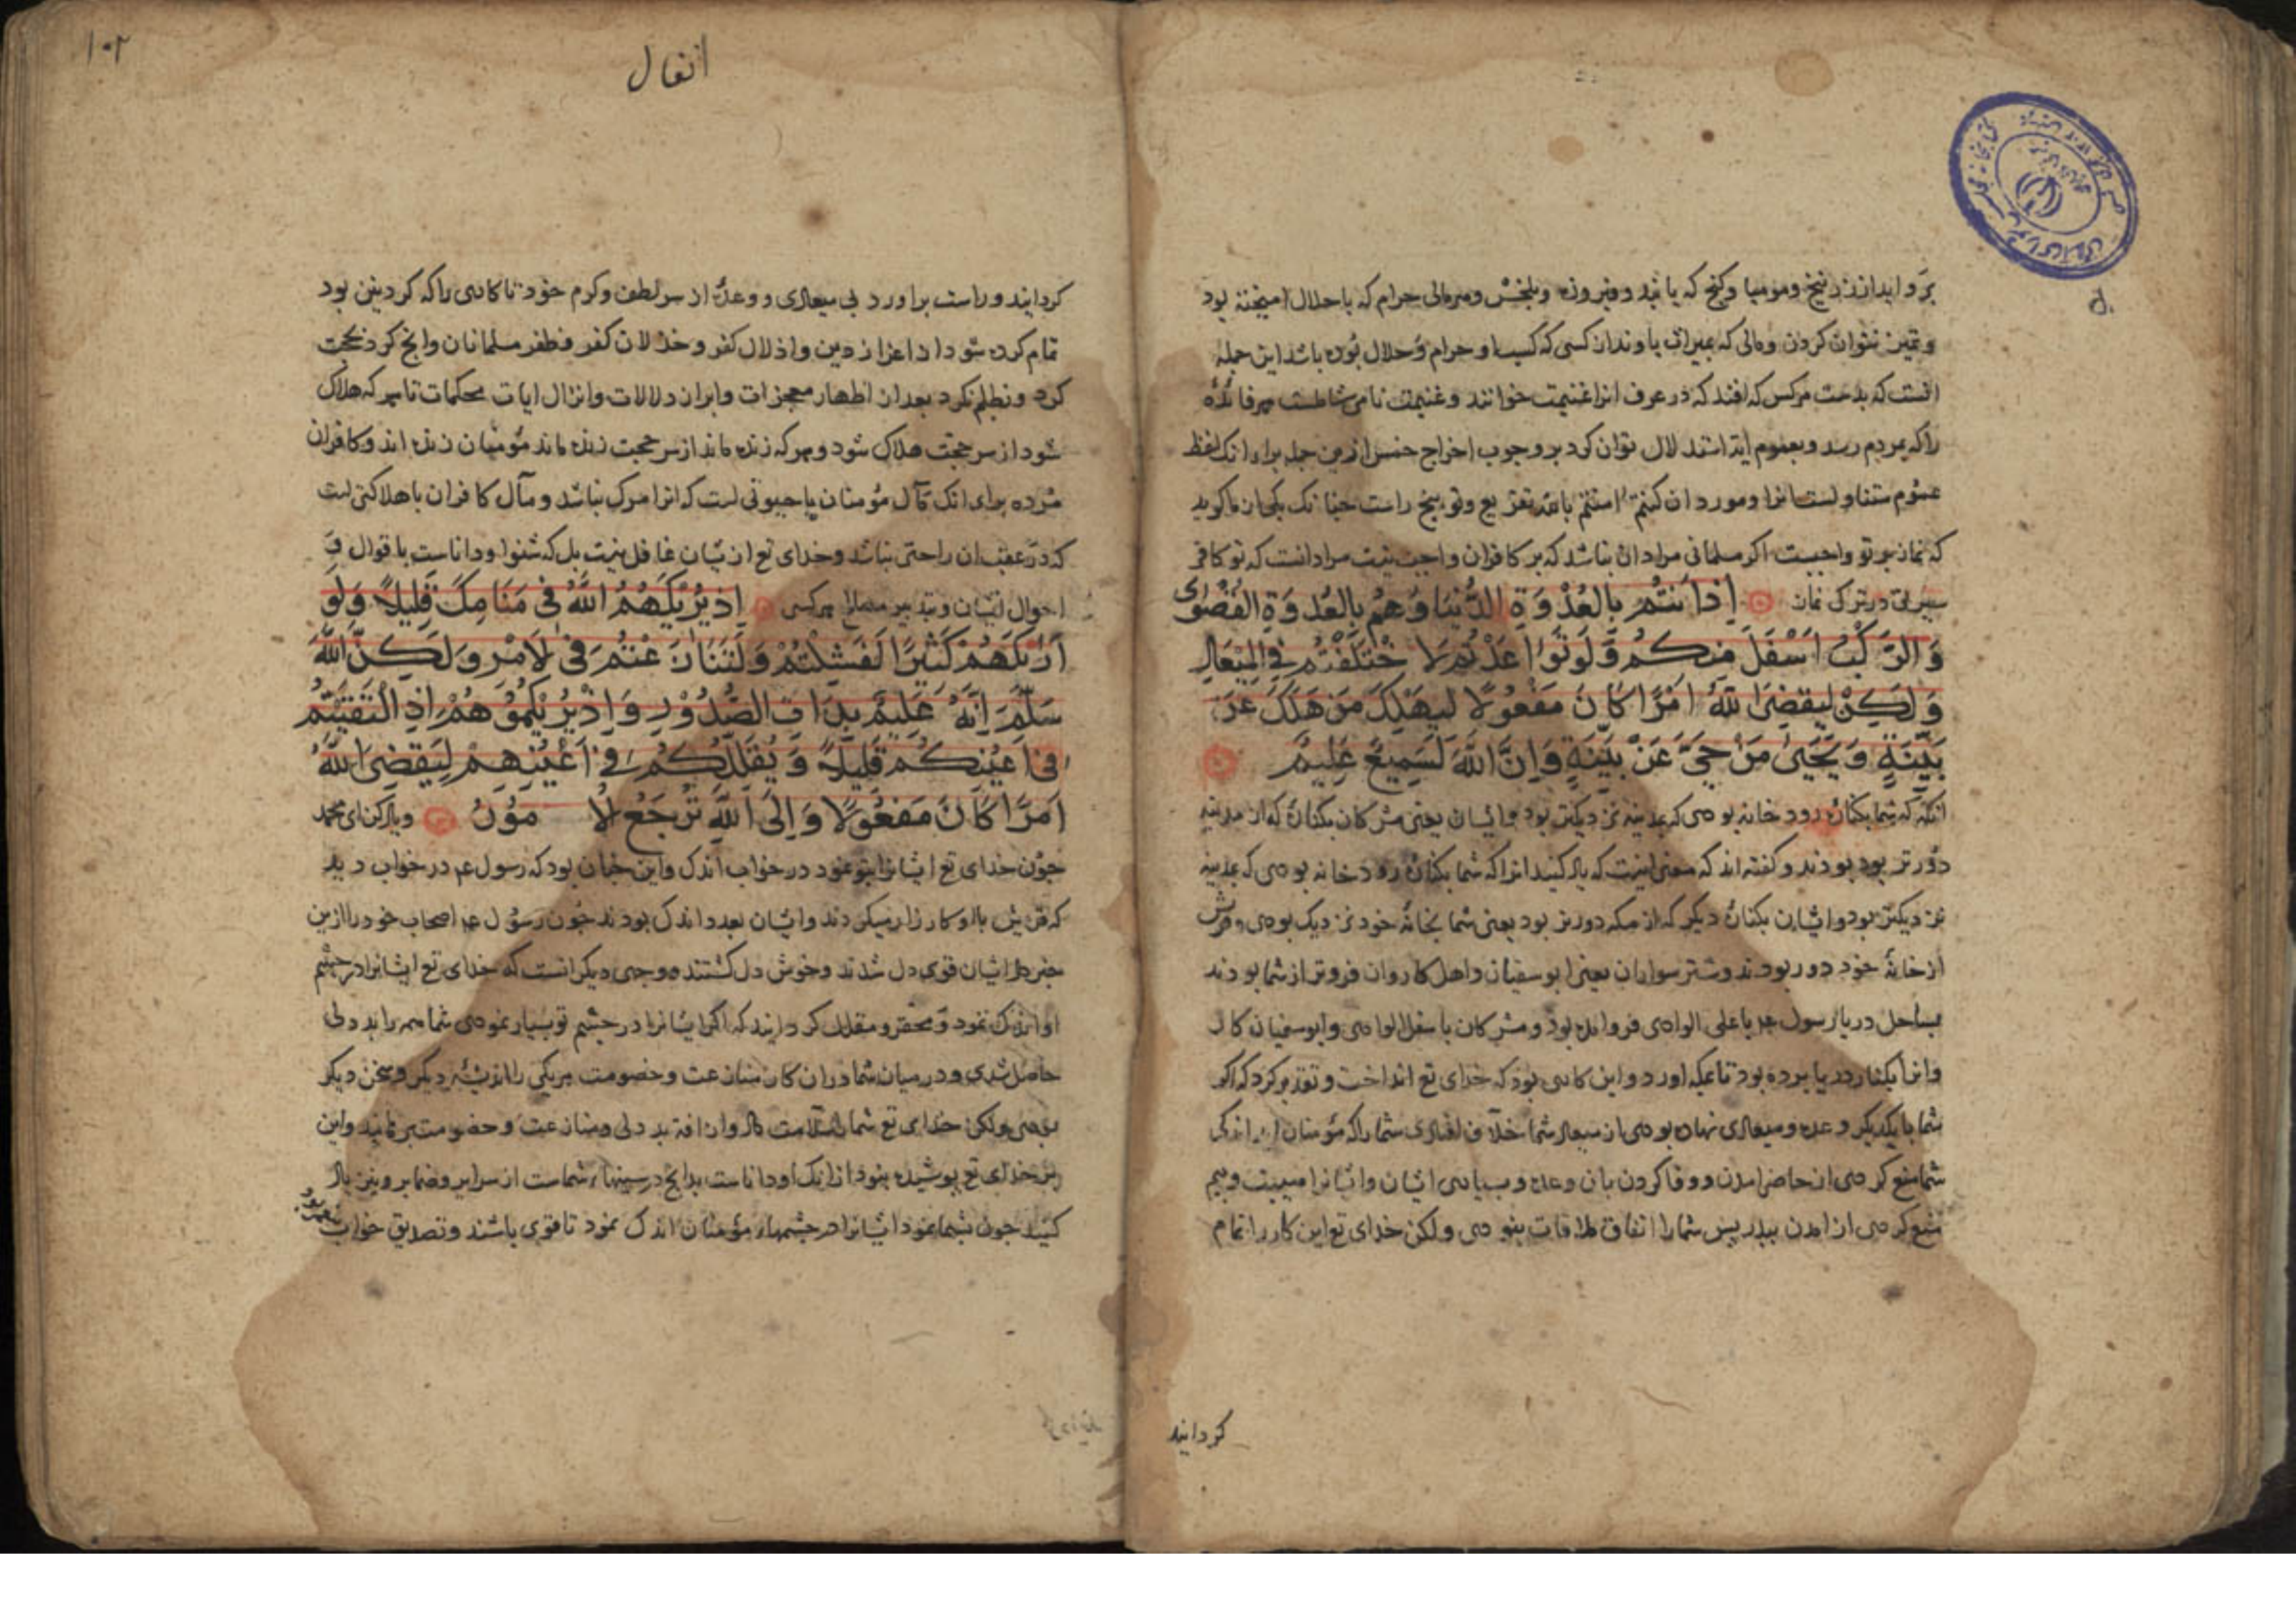 بر او ایدانند زنیخ و مومیا و کنج که یابند و فیروزه و بلخش و هر مالی حرام که با حلال امیخته بود
و تمیز نتوان کردن و مالی که بمیراث یاوند از کسی که کسب او حرام و حلال بوده باشد این جمله
انست که بدست هرکس که افتد که در عرف انرا غنیمت خوانند و غنیمت نامی شاملست هر فائدهٔ
را که بمردم رسد و بعموم ایه استدلال توان کرد بر وجوب اخراج خمس ازین جمله برای انک لفظ
عموم متناولست انرا و مورد ان کنتم امنتم بالله تقریع و توبیخ راست چنانک یکی از ما گوید
که نماز بر تو واجبست اکر مسلمانی مراد ان نباشد که بر کافران واجب نیست مراد انست که تو کافر
سیرتی در ترک نماز اِذ اَنتُم بِالعُدْوَةِ الدُّنیَا وَهُم بِالعُدوَةِ القُصْوَی
وَالرَّکبُ اَسْفَلَ مِنکُم وَلَو تَوَاعَدْتُم لَا خْتَلَفْتُم فِی المِیْعَادِ
وَلٰکِنْ لِیَقضِیَ اللّٰهُ اَمْرًا کَانَ مَفْعُولًا لِیَهْلِکَ مَن هَلَکَ عَن
بَیِّنَةٍ وَیَحْیَیٰ مَنْ حَیَّ عَنْ بَیِّنَةٍ وَاِنَّ اللّٰهَ لَسَمِیعٌ عَلِیمٌ
انکه که شما بکنارهٔ رود خانه بودی که بمدینه نزدیکتر بود و ایشان یعنی مشرکان بکنارهٔ که از مدینه
دورتر بود بودند و کفته اند که معنی اینست که یاد کنید انرا که شما بکنارهٔ رود خانه بودی که بمدینه
نزدیکتر بود و ایشان بکنارهٔ دیکر که از مکه دورتر بود یعنی شما بخانهٔ خود نزدیک بودی و قریش
از خانهٔ خود دور بودند و شتر سواران یعنی ابوسفیان و اهل کاروان فروتر از شما بودند
بساحل دریا رسول عم باعلی الوادی فرو امده بود و مشرکان باسفل الوادی و ابوسفیان کار
وانرا بکنار دریا برده بود تا بمکه اورد و این کاری بود که خدای تع انداخت و تقدیر کرد که اکر
شما با یکدیکر وعده و میعادی نهاده بودی از میعاد شما خلاف افتادی شما را که مؤمنان اندک
شما منع کردی از حاضر امدن و وفا کردن بان وعده و بسیاری ایشان و ایشانرا هیبت و بیم
منع کردی از امدن ببدر پس شما را اتفاق ملاقات نبودی ولکن خدای تع این کار را تمام
کردانید
۱۰۲
انفال
کردانید و راست براورد بی میعادی و وعدهٔ از سر لطف و کرم خود تا کاری را که کردنی بود
تمام کرده شود از اعزاز دین و اذلال کفر و خذلان کفر و ظفر مسلمانان وانچ کرد بحجت
کرد و نظلم نکرد بعد از اظهار معجزات و ابراز دلالات و انزال ایات محکمات تا هر که هلاک
شود از سر حجت هلاک شود و هر که زنده ماند از سر حجت زنده ماند مؤمنان زنده اند و کافران
مرده برای انک مآل مؤمنان باحیوتی است که انرا مرک نباشد و مآل کافران باهلاکتی است
که در عقب ان راحتی نباشد و خدای تع از ایشان غافل نیست بل که شنوا و داناست باقوال و
احوال ایشان و تدبیر مصالح هر کسی اِذ یُرِیکَهُمُ اللّٰهُ فِی مَنَامِکَ قَلِیلًا وَلَو
اَرٰیکَهُمْ کَثِیرًا لَفَشِلْتُمْ وَلَتَنَازَعْتُم فِی لْاَمْرِ وَلٰکِنَّ اللّٰهَ
سَلَّمَ اِنَّهُ عَلِیمٌ بِذَاتِ الصُّدُوْرِ وَاِذْ یُرِیکُمُوْهُمْ اِذِ الْتَقَیْتُمْ
فِی اَعْیُنِکُم قَلِیلًا وَیُقَلِّلُکُم فِی اَعْیُنِهِمْ لِیَقضِیَ اللّٰهُ
اَمْرًا کَانَ مَفعُولًا وَاِلَی اللّٰهِ تُرْجَعُ لْاُمُوْرُ و یاد کن ای محمد
چون خدای تع ایشانرا بتو نمود در خواب اندک و این چنان بود که رسول عم در خواب دید
که قریش با او کارزار میکردند و ایشان بعدد اندک بودند چون رسول عم اصحاب خود را ازین
خبر داد ایشان قوی دل شدند و خوش دل کشتند و وجهی دیکر انست که خدای تع ایشانرا در چشم
او اندک نمود و محقر و مقلل کردانید که اکر ایشانرا در چشم تو بسیار نمودی شما همه را بددلی
حاصل شدی و در میان شما در ان کار منازعت و خصومت هر یکی را اندیشهٔ دیکر و سخن دیکر
بودی ولکن خدای تع شما را سلامت داد و ان افت بددلی و منازعت و خصومت برهانید و این
بر خدای تع پوشیده نبود از انک او داناست بدانچ در سینهاء شماست از سرایر و ضمایر و نیز یاد
کنید چون بشما نمود ایشانرا در چشمهاء مؤمنان اندک نمود تا قوی باشند و تصدیق خواب